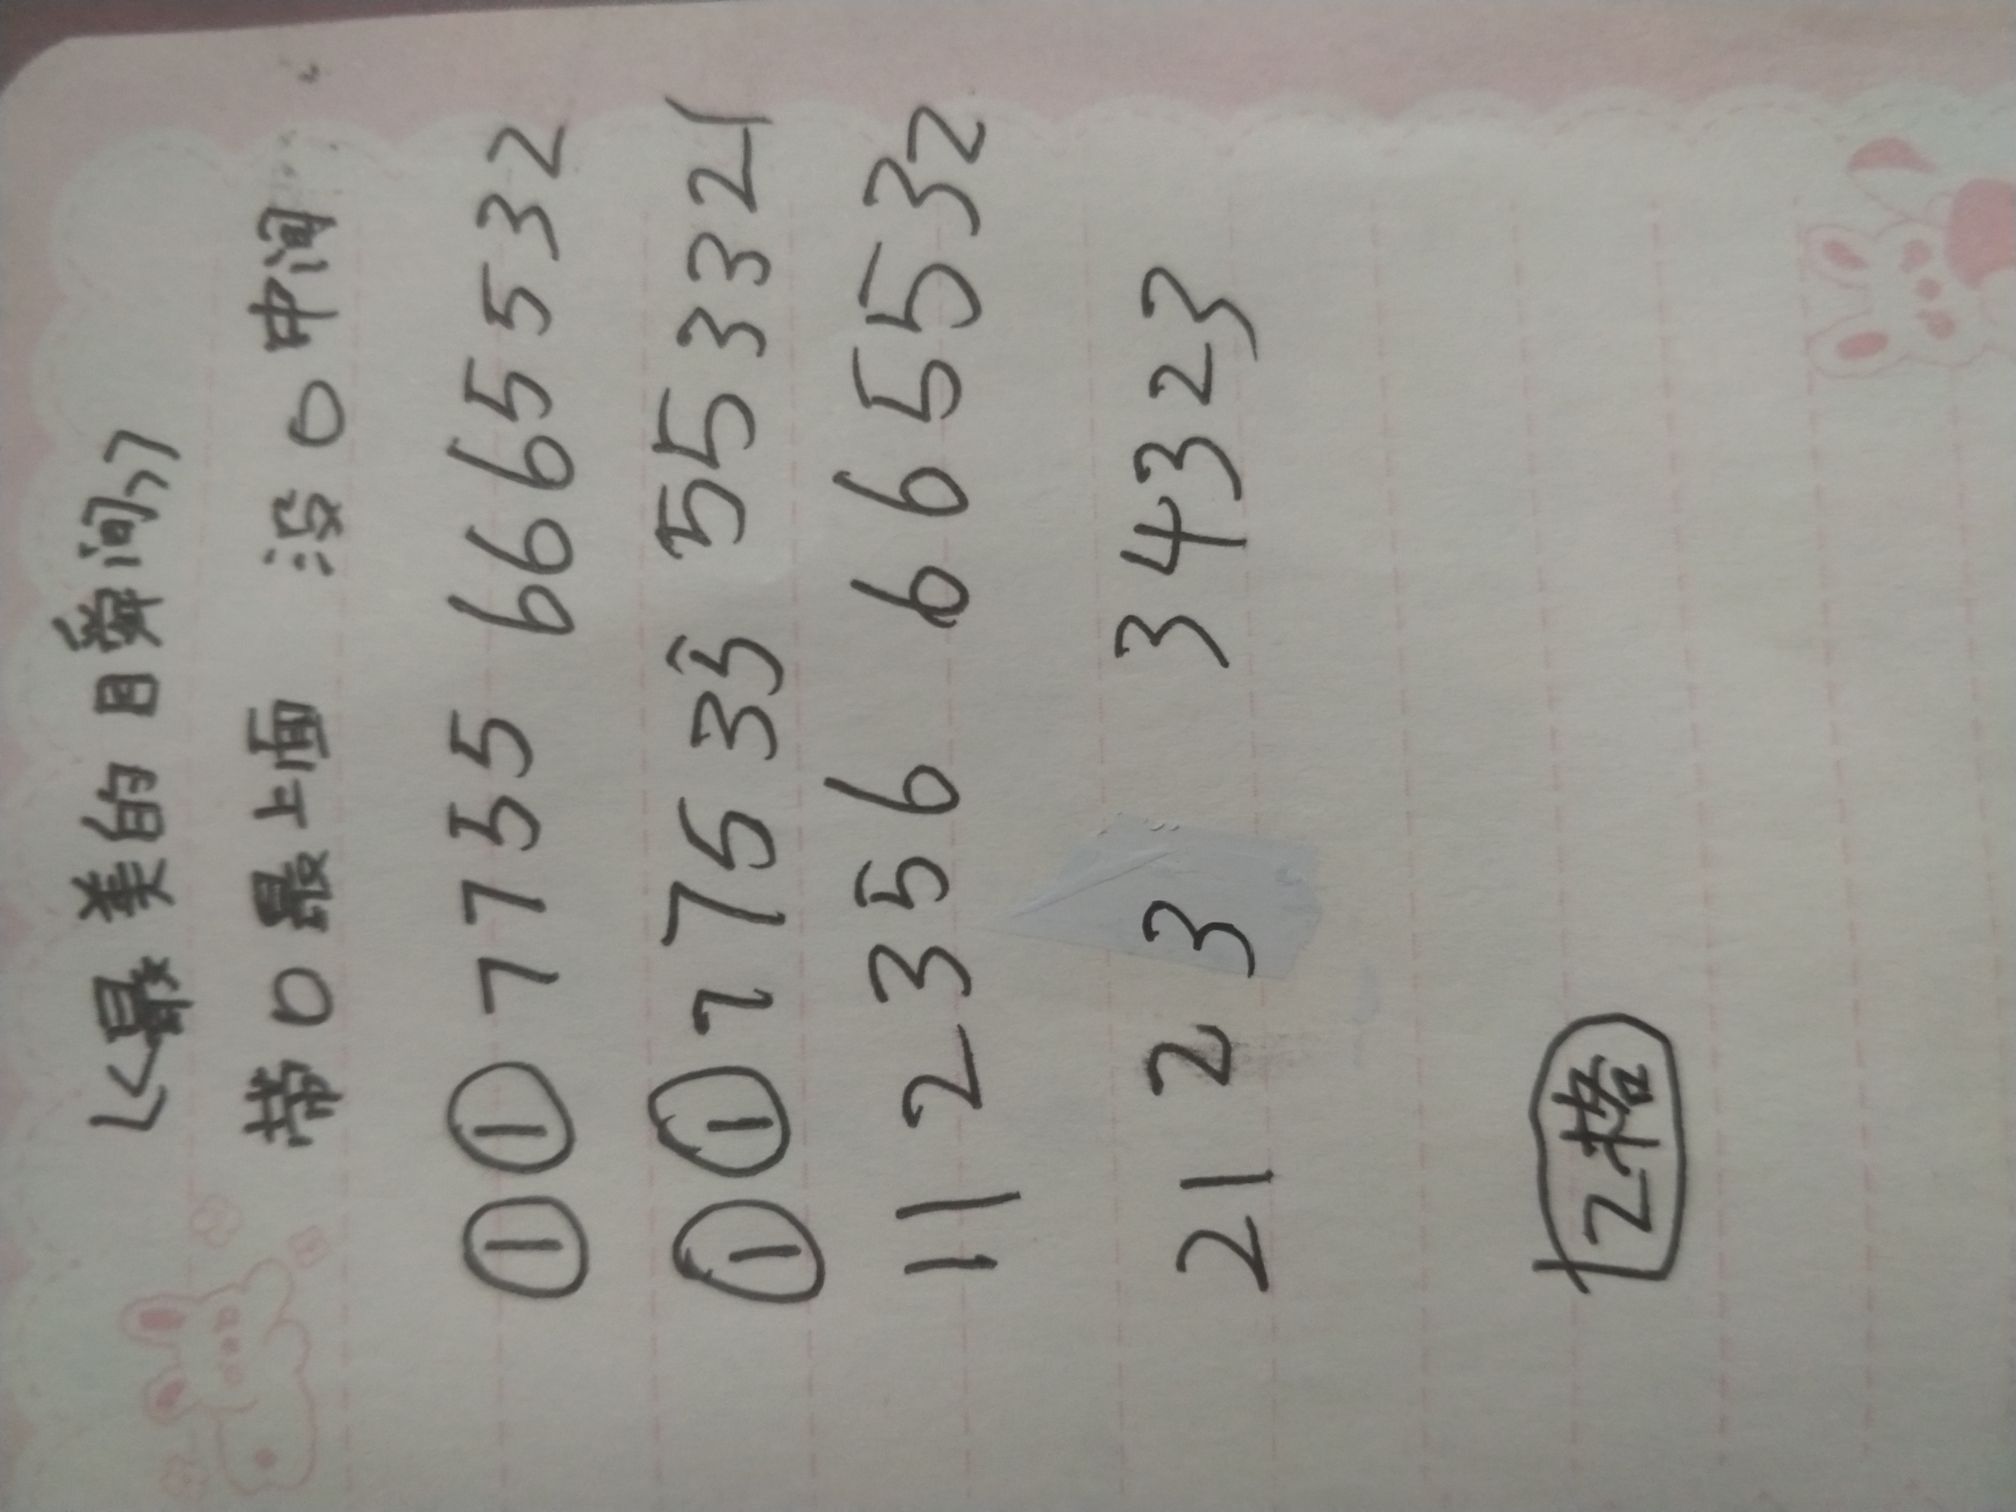 《最美的瞬间》
带〇最上面 没〇中间
①①7755 6665532
①①77535 5553321
112356 665532
2123 34323